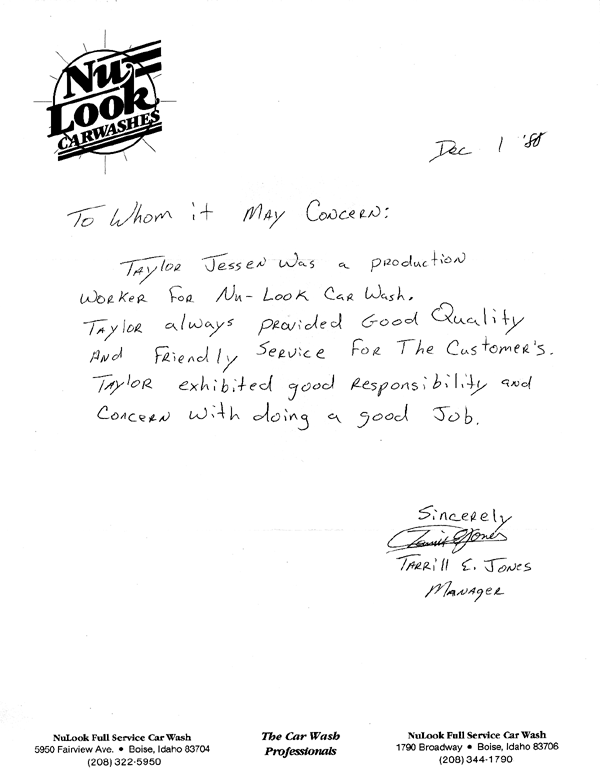 Nu
Look
CARWASHES
Dec 1 '88
To Whom it May Concern:
Taylor Jessen was a production
worker for Nu-Look Car Wash.
Taylor always provided Good Quality
and friendly Service for The Customer's.
Taylor exhibited good responsibility and
concern with doing a good Job.
Sincerely
Tarrill E. Jones
Manager
NuLook Full Service Car Wash
5950 Fairview Ave. • Boise, Idaho 83704
(208) 322-5950
The Car Wash
Professionals
NuLook Full Service Car Wash
1790 Broadway • Boise, Idaho 83706
(208) 344-1790